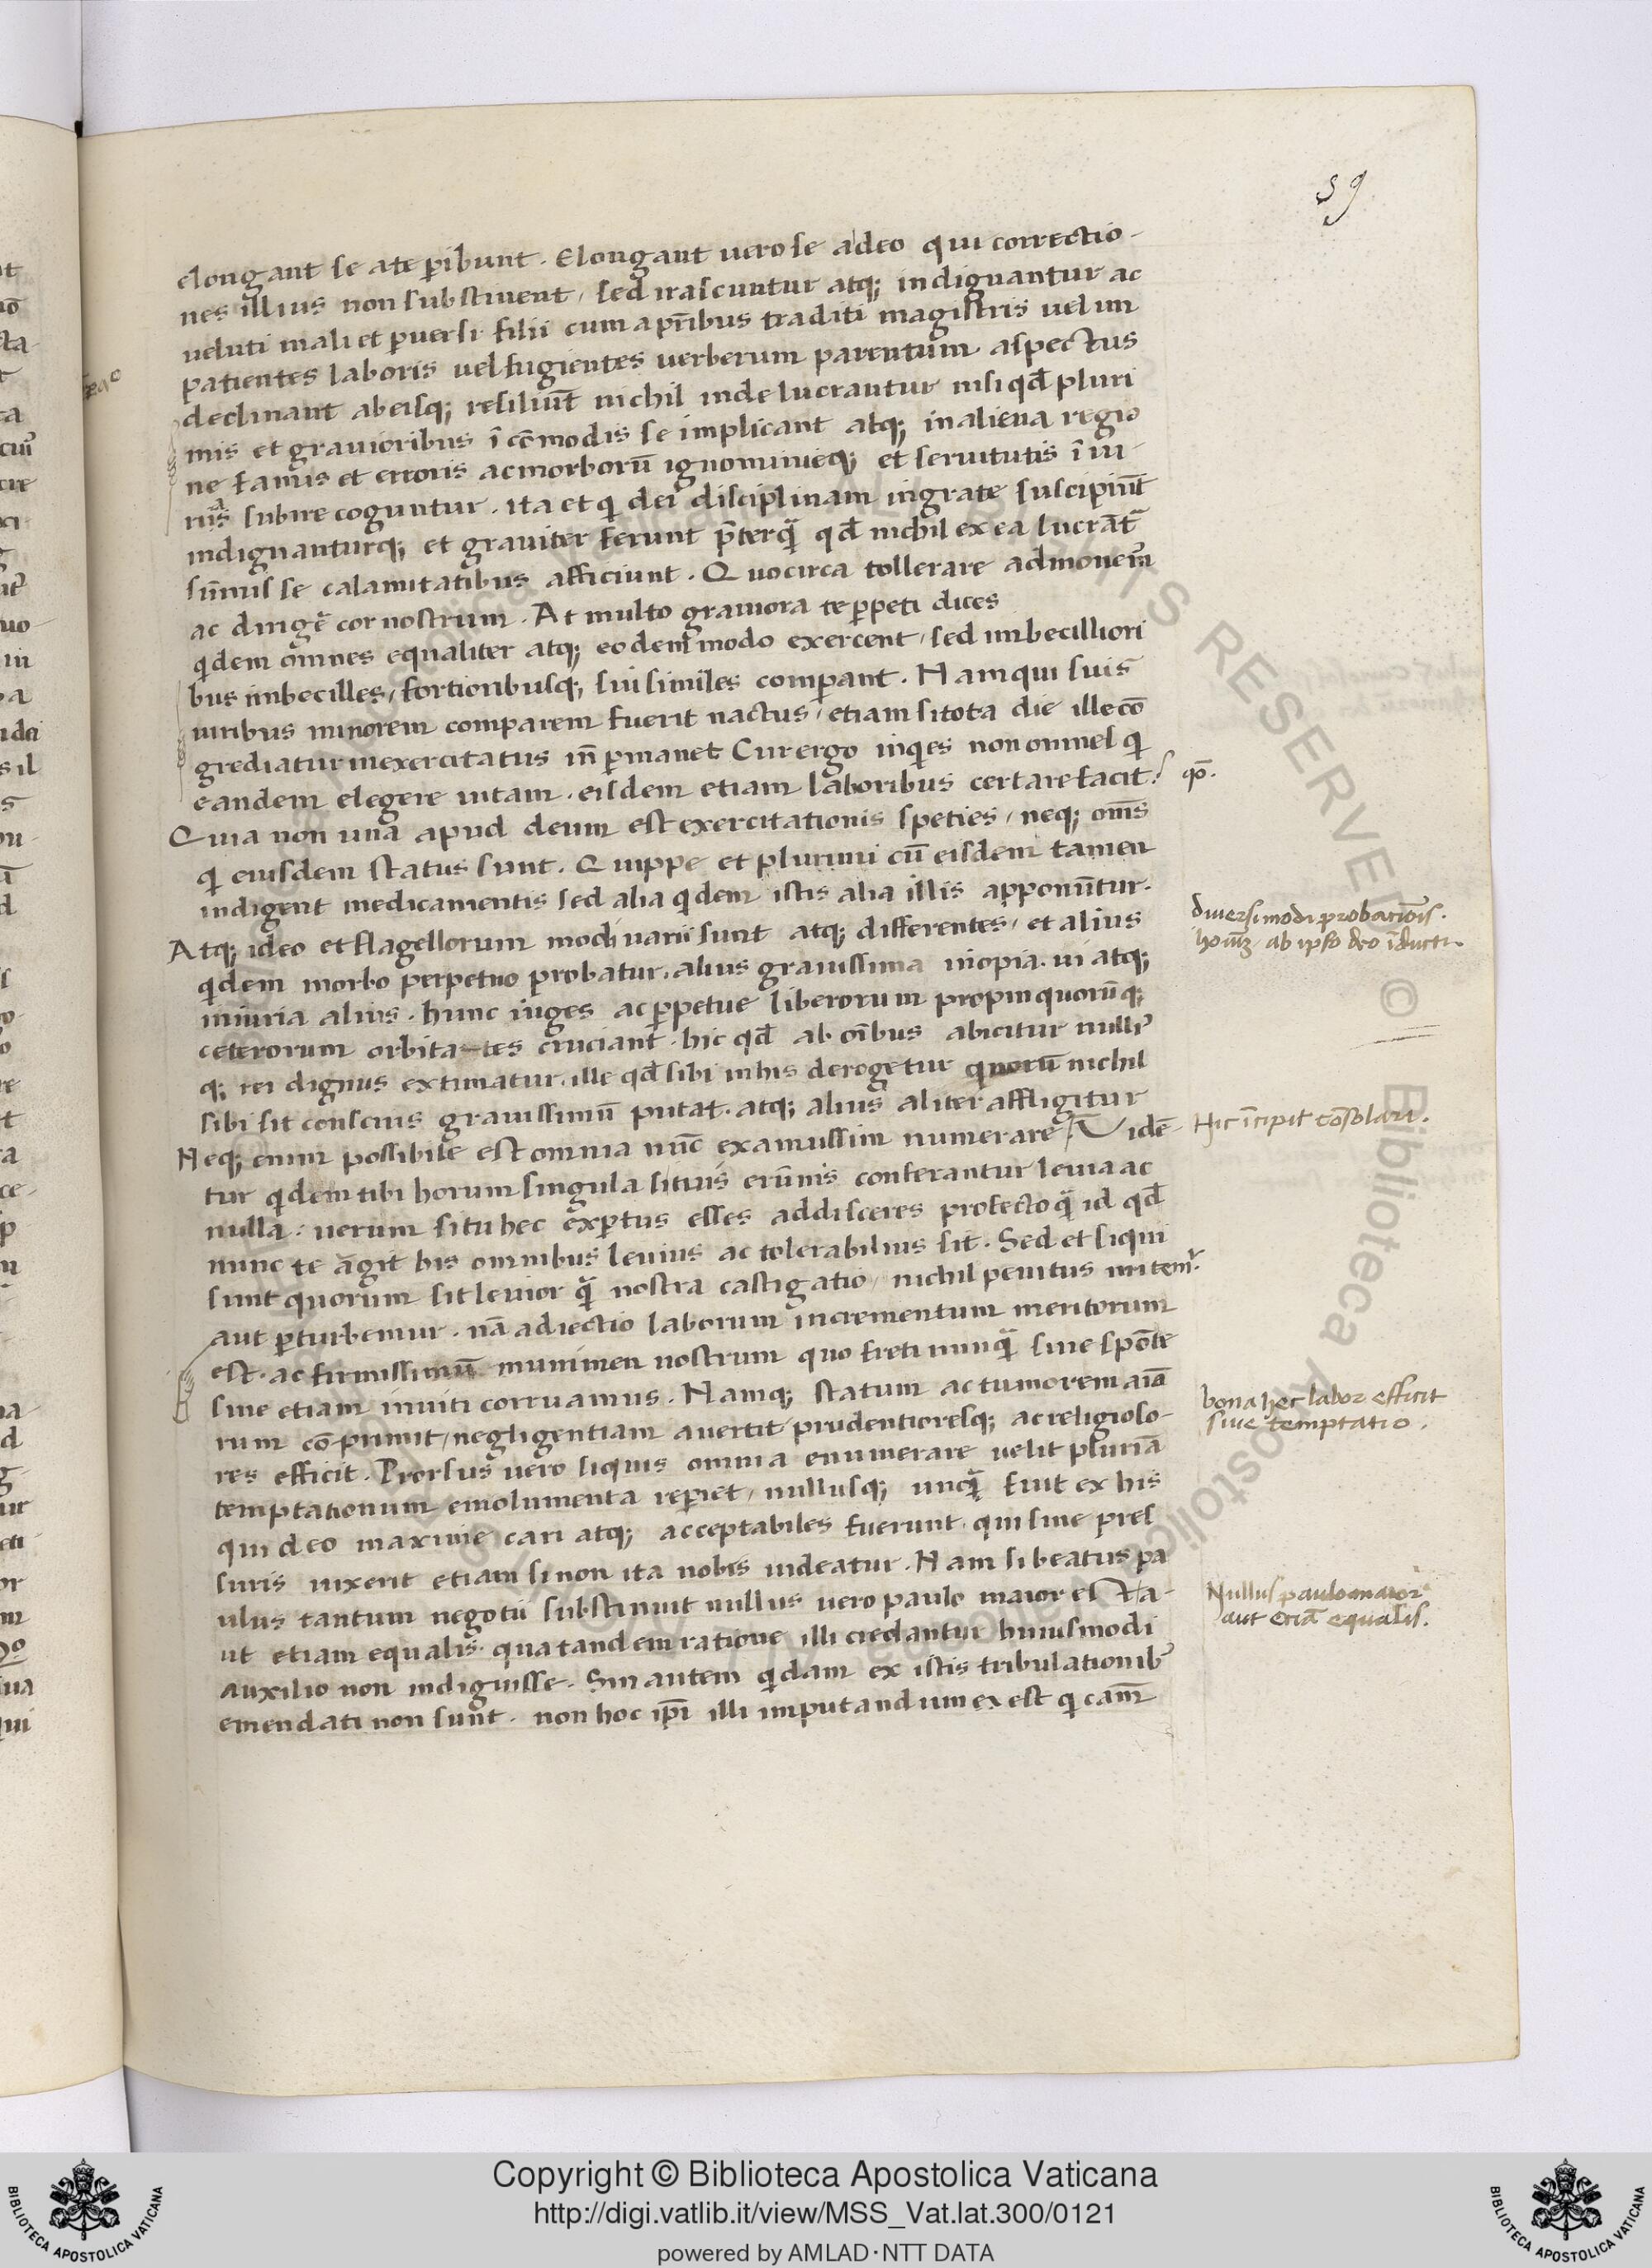 59
elongant se a te ꝑibunt. Elongant uero se a deo qui correctio-
nes illius non substinent, sed irascuntur atq; indignantur ac
ueluti mali et ꝑuersi filii cum a pr̄ibus traditi magistris uel im
patientes laboris uel fugientes uerberum parentum aspectus
declinant ab eisq; resiliūt nichil inde lucrantur nisi qd̄ pluri
mis et grauioribus īcōmodis se implicant atq; in aliena regio
ne famis et erroris ac morborū ignominieq; et seruitutis īiu-
rias subire coguntur. ita et qi dei disciplinam ingrate suscipiūt
indignanturq; et grauiter ferunt p̄terq̄ qd̄ nichil ex ea lucrāt̄
sūmis se calamitatibus afficiunt. Quocirca tollerare admonem̄
ac dirigē cor nostrum. At multo grauiora te ꝑpeti dices
qidem omnes equaliter atq; eodem modo exercent, sed imbecilliori
bus imbecilles, fortioribusq; sui similes comꝑant. Nam qui suis
uiribus minorem comparem fuerit nactus, etiam si tota die ille cō
grediatur inexercitatus in̄ ꝑmanet Cur ergo inqies non omnes qi
eandem elegere uitam. eisdem etiam laboribus certare facit?
qō.
Quia non una apud deum est exercitationis speties, neq; om̄s
qi eiusdem status sunt. Quippe et plurimi cū eisdem tamen
indigent medicamentis sed alia qidem istis alia illis apponūtur.
Atq; ideo et flagellorum modi uarii sunt atq; differentes, et alius
diuersi modi probatiōis.
hoīuz ab ipso deo īducti.
qidem morbo perpetuo probatur. alius grauissima inopia. ui atq;
iniuria alius. hunc iuges ac ꝑpetue liberorum propinquorūq;
ceterorum orbita-tes cruciant. hic qd̄ ab oībus abicitur nulli
q; rei dignus extimatur. ille qd̄ sibi in his derogetur quorū nichil
sibi sit conscius grauissimū putat. atq; alius aliter affligitur
Neq; enim possibile est omnia nūc examussim numerare. Vidē
Hic īcipit cōsolari.
tur qidem tibi horum singula si tuis erūnis conferantur leuia ac
nulla. uerum si tu hec exꝑtus esses addisceres profecto q̄ id qd̄
nunc te āgit his omnibus leuius ac tolerabilius sit. Sed et si qui
sunt quorum sit leuior q̄ nostra castigatio, nichil penitus mitem̄.
aut ꝑturbemur. nā adiectio laborum incrementum meritorum
est. ac firmissimū munimen nostrum quo freti nunq̄ siue spōte
siue etiam inuiti corruamus. Namq; statum ac tumorem aīa
rum cō-primit, negligentiam auertit, prudentioresq; ac religioso-
bona hec labor efficit
siue temptatio.
res efficit. Prorsus uero si quis omnia enumerare uelit plurīa
temptationum emolumenta reꝑiet, nullusq; unq̄ fuit ex his
qui deo maxime cari atq; acceptabiles fuerunt. qui sine pres
suris uixerit etiam si non ita nobis uideatur. Nam si beatus pa
ulus tantum negotii substinuit nullus uero paulo maior est a-
Nullus paulo maior
aut etiā equalis.
ut etiam equalis. qua tandem ratione illi credantur huiusmodi
auxilio non indiguisse. Sin autem qidam ex istis tribulationib;
emendati non sunt. non hoc ip̄i illi imputandum ex est qi cam̄
Copyright © Biblioteca Apostolica Vaticana
http://digi.vatlib.it/view/MSS_Vat.lat.300/0121
powered by AMLAD·NTT DATA
BIBLIOTECA APOSTOLICA VATICANA
BIBLIOTECA APOSTOLICA VATICANA